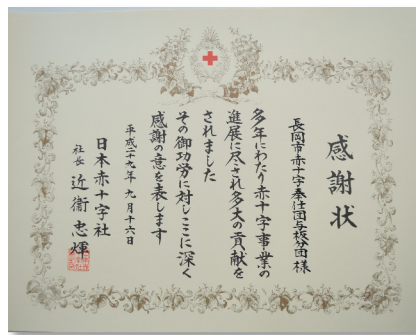 感謝状
長岡市赤十字奉仕団与板分団様
多年にわたり赤十字事業の
進展に尽され多大の貢献を
されました
その御功労に対しここに深く
感謝の意を表します
平成二十九年九月十六日
日本赤十字社
社長 近衞忠煇